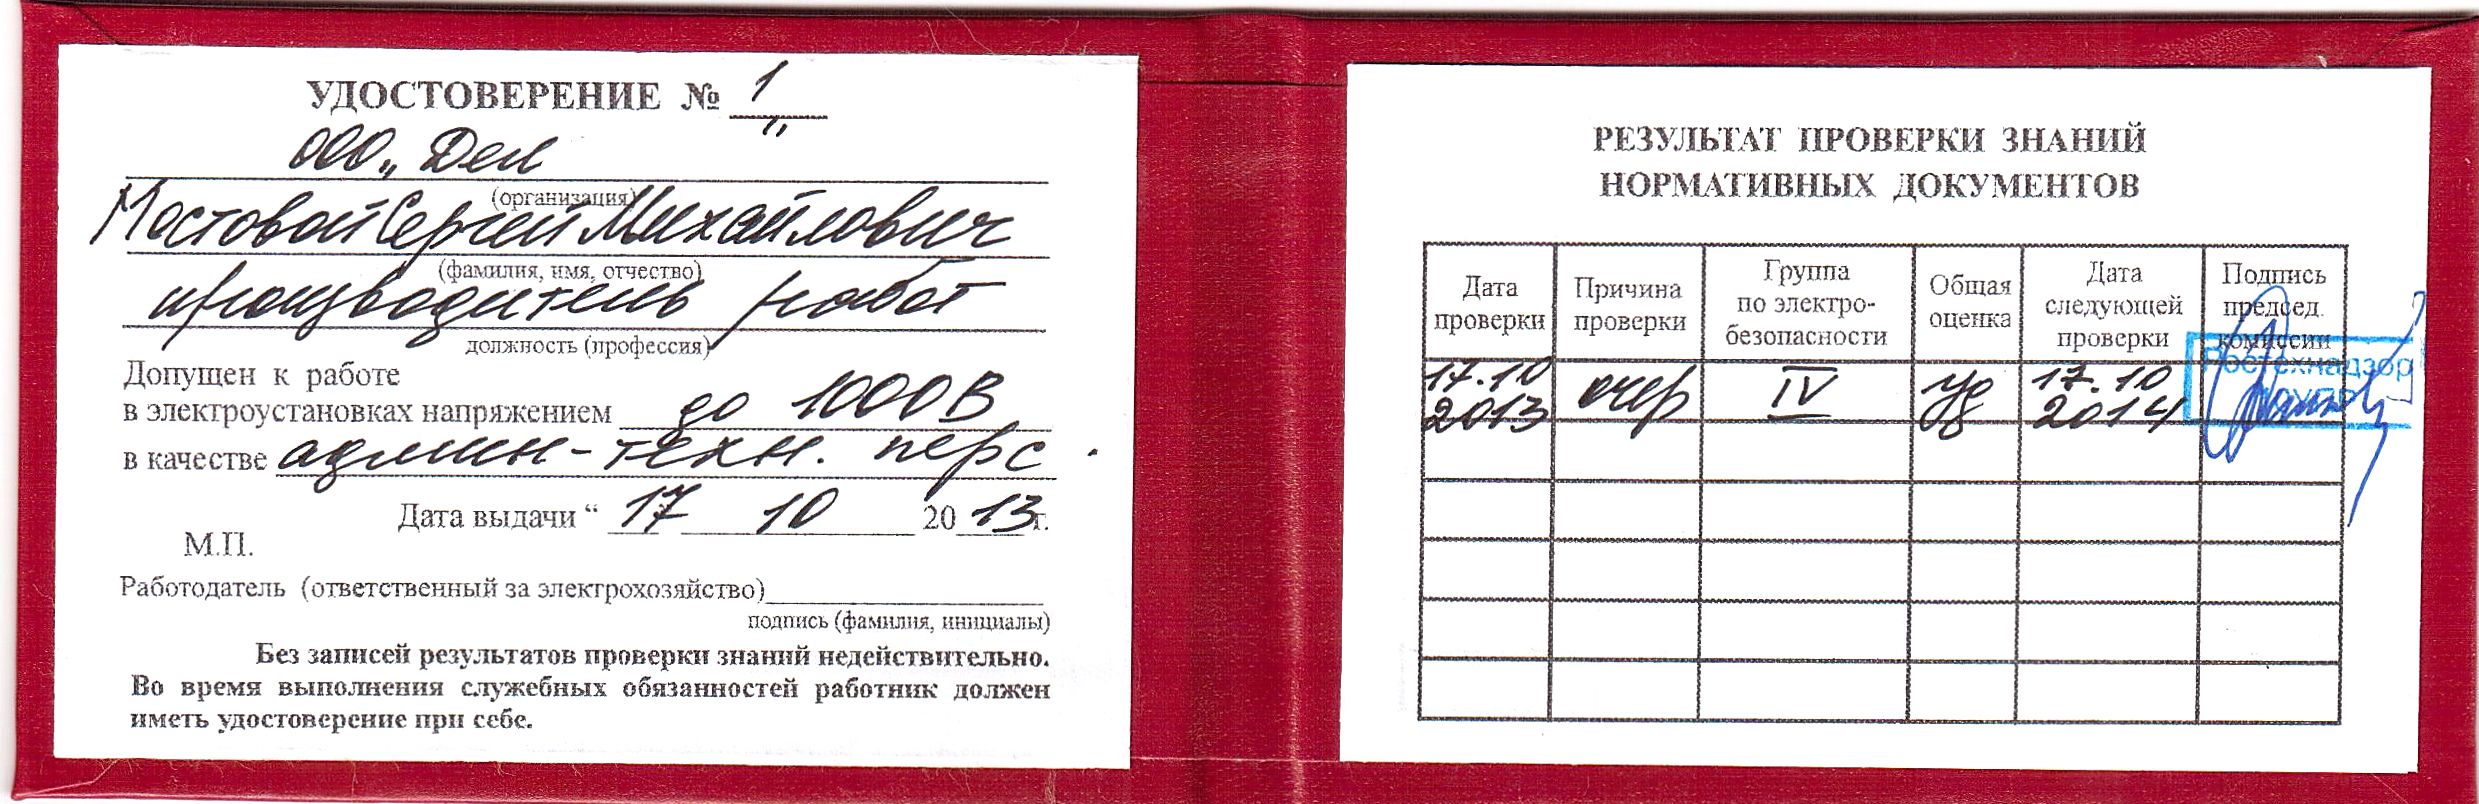 УДОСТОВЕРЕНИЕ № 1
ООО „Дел"
(организация)
Мостовой Сергей Михайлович
(фамилия, имя, отчество)
производитель работ
должность (профессия)
Допущен к работе
в электроустановках напряжением до 1000 В
в качестве админ-техн. перс.
Дата выдачи “ 17 10 2013г.
М.П.
Работодатель (ответственный за электрохозяйство)
подпись (фамилия, инициалы)
Без записей результатов проверки знаний недействительно.
Во время выполнения служебных обязанностей работник должен
иметь удостоверение при себе.
РЕЗУЛЬТАТ ПРОВЕРКИ ЗНАНИЙ
НОРМАТИВНЫХ ДОКУМЕНТОВ
Дата проверки
Причина проверки
Группа по электро-безопасности
Общая оценка
Дата следующей проверки
Подпись председ. комиссии
17.10 2013 очер IV уд 17.10 2014
Ростехнадзор